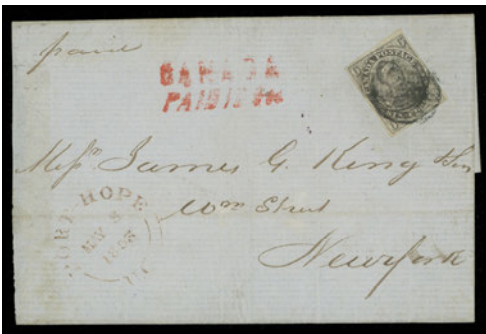 paid
CANADA
PAID 10 Cts
CANADA POSTAGE
Messrs. James G. King & Son
Wm Street
New York
PORT HOPE
MY 8